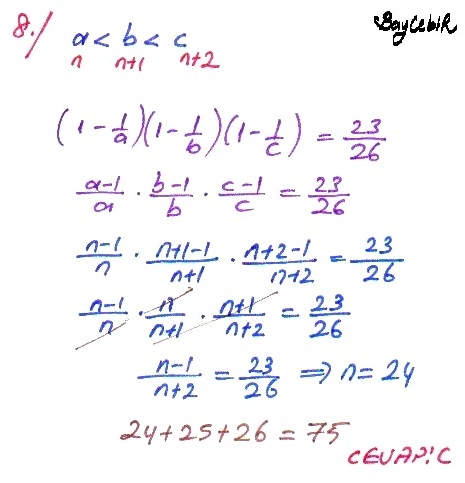 BayCebiR
8./ a < b < c
n n+1 n+2
(1 - 1/a)(1 - 1/b)(1 - 1/c) = 23/26
a-1/a · b-1/b · c-1/c = 23/26
n-1/n · n+1-1/n+1 · n+2-1/n+2 = 23/26
n-1/n · n/n+1 · n+1/n+2 = 23/26
n-1/n+2 = 23/26 ⇒ n = 24
24+25+26 = 75
CEVAP: C